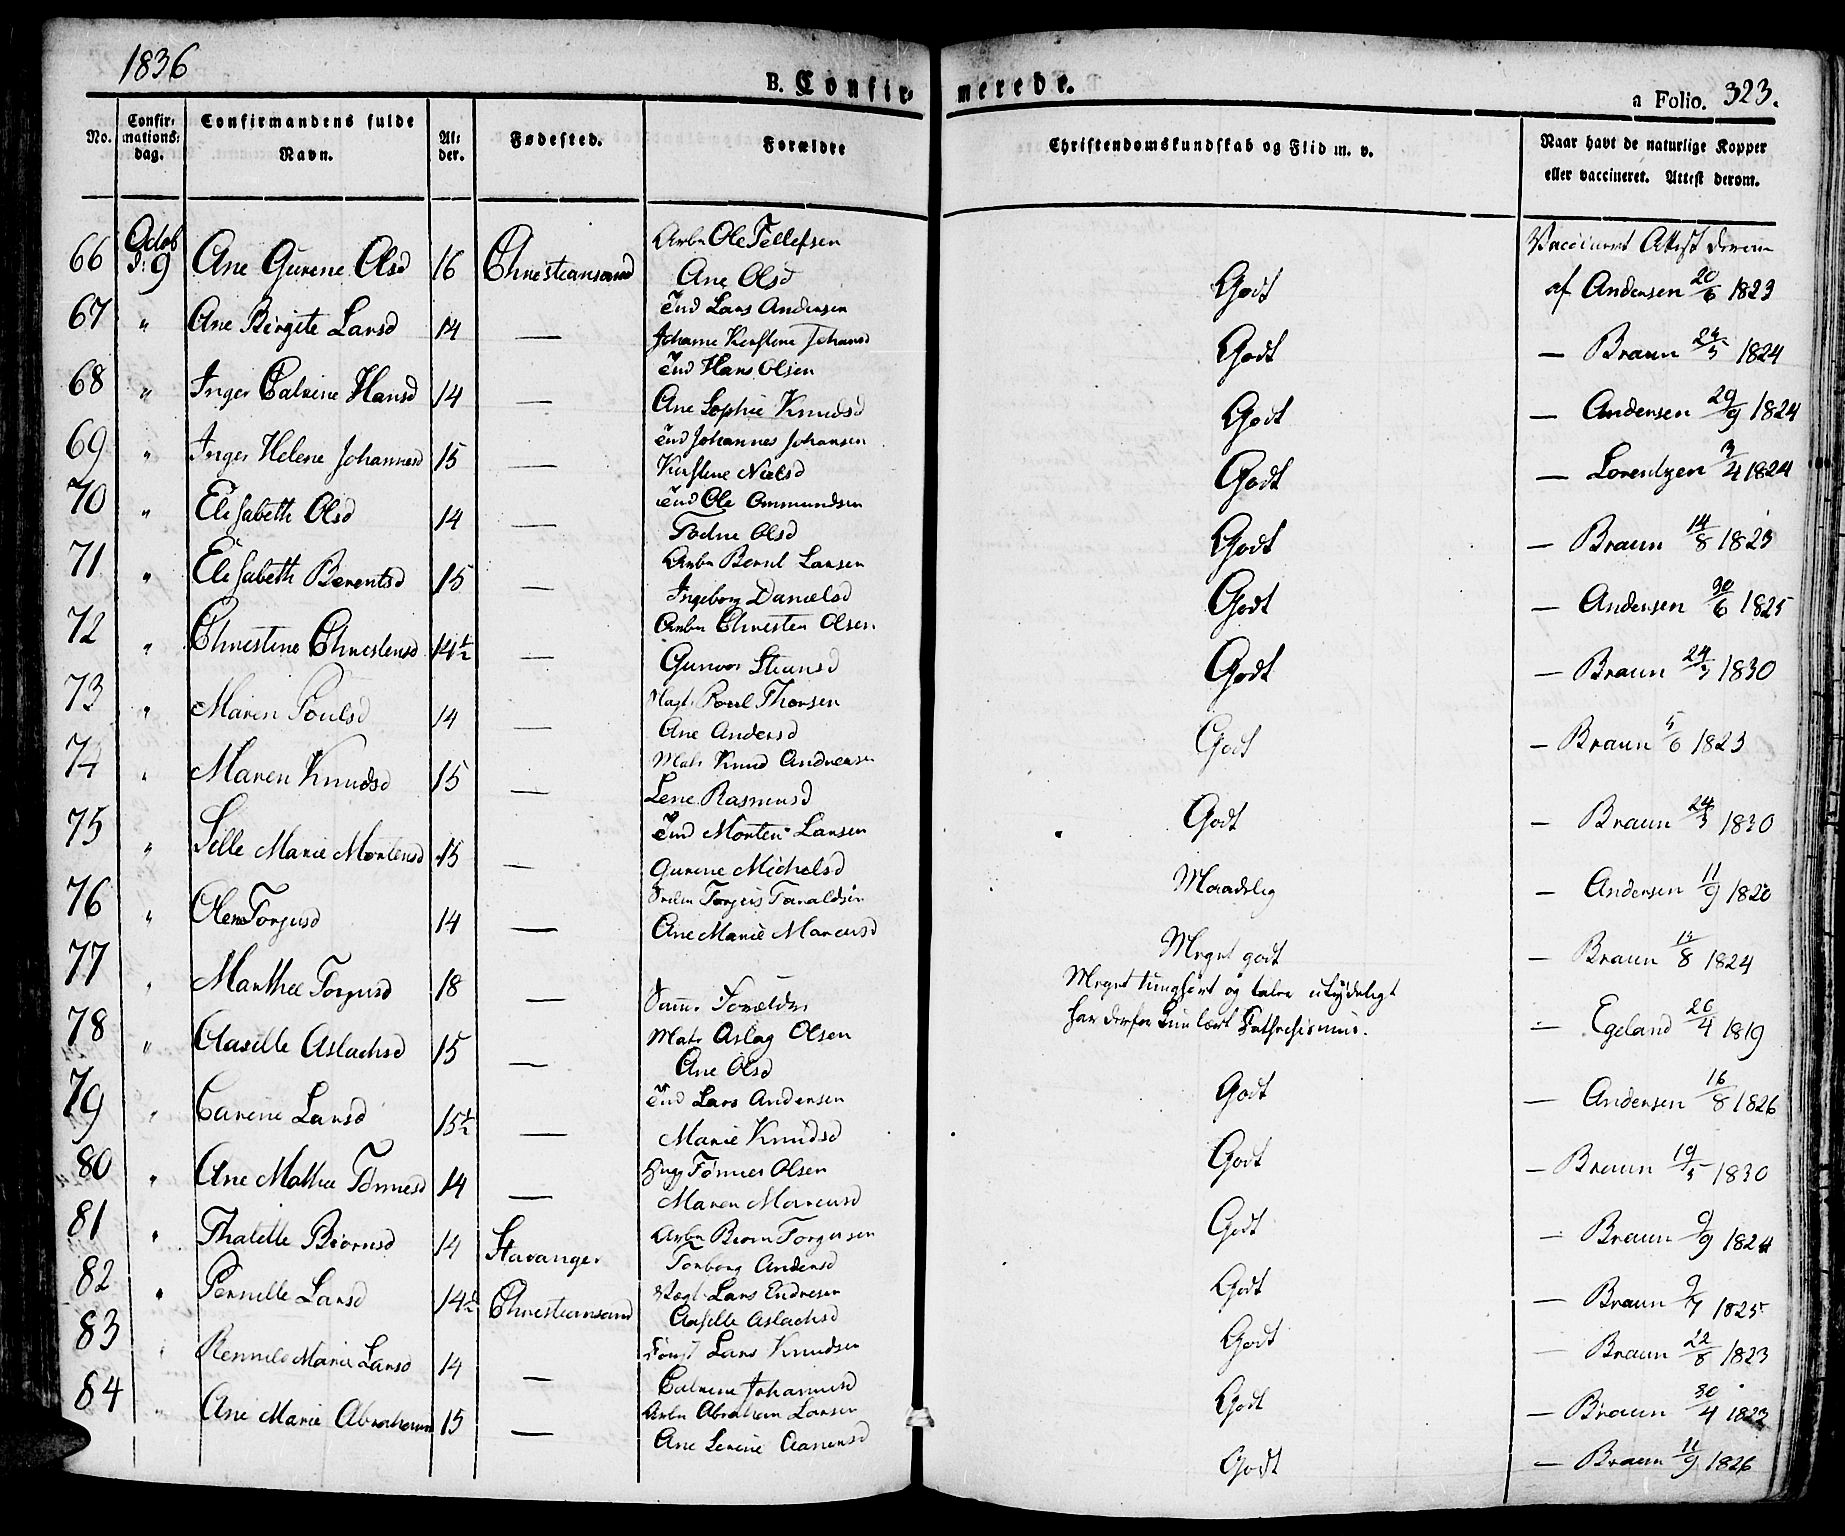 1836
B. Confirmerede.
a Folio. 323.
No. Confirmationsdag. Confirmandens fulde Navn. Alder. Fødested. Forældre Christendomskundskab og Flid m. v. Naar havt de naturlige Kopper eller vaccineret. Attest derom.
66 Octob d: 9 Ane Gurene Olsd 16 Christiansand Arbr Ole Tellefsen Ane Olsd Godt Vaccineret Attest derom af Andersen 20/6 1823
67 " Ane Birgite Larsd 14 — Lars Andersen Johanne Kirstine Johansd Godt — Braun 24/5 1824
68 " Inger Catrine Hansd 14 — Hans Olsen Ane Sophie Knudsd Godt — Andersen 29/9 1824
69 " Inger Helene Johannesd 15 — Johannes Johansen Kirstine Nielsd Godt — Lorentzen 3/4 1824
70 " Elisabeth Olsd 14 — Ole Ommundsen Todne Olsd Godt — Braun 14/8 1823
71 " Elisabeth Berentsd 15 — Arbr Bernt Larsen Ingeborg Danielsd Godt — Andersen 30/6 1825
72 " Christine Christensd 14½ — Arbr Christen Olsen Gunvor Steensd Godt — Braun 24/5 1830
73 " Maren Poulsd 14 — Poul Thorsen Ane Andersd Godt — Braun 5/6 1823
74 " Maren Knudsd 15 — Matr Knud Andreasen Lene Rasmusd Godt — Braun 24/5 1830
75 " Sille Marie Mortensd 15 — Morten Larsen Gurene Michelsd Maadelig — Andersen 11/9 1820
76 " Olene Torgusd 14 — Torgus Taraldsen Ane Marie Marcusd Meget godt — Braun 12/8 1824
77 " Marthe Torgusd 18 — Samme Forældre Meget tunghørt og taler utydeligt har derfor kun lært Kathechismus. — Egeland 26/4 1819
78 " Claselle Aslachsd 15 — Matr Aslag Olsen Ane Olsd Godt — Andersen 16/8 1826
79 " Carene Larsd 15½ — Lars Andersen Marie Knudsd Godt — Braun 19/5 1830
80 " Ane Mathee Tønnesd 14 — Tønnes Olsen Maren Marcusd Godt — Braun 9/9 1824
81 " Thalelle Biørnsd 14 Stavanger Arbr Biørn Torgusen Torborg Andersd Godt — Braun 9/7 1825
82 " Pernille Larsd 14½ Christiansand Lars Endresen Aaselle Aslachsd Godt — Braun 22/8 1823
83 " Marie Larsd 14 — Lars Knudsen Catrine Johannesd Godt — Braun 30/4 1823
84 " Ane Marie Abrahamsd 15 — Arbr Abraham Larsen Ane Serine Aanensd Godt — Braun 11/9 1826